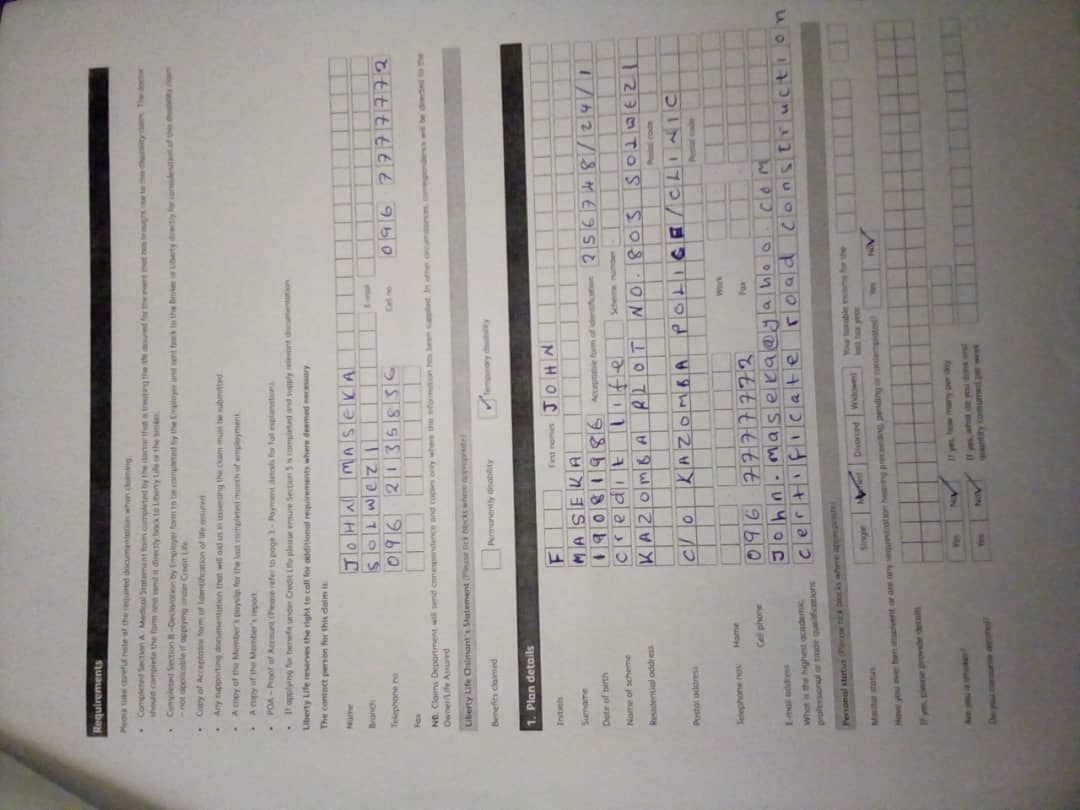 Requirements
Please take careful note of the required documentation when claiming
• Completed Section A - Medical Statement form completed by the doctor that is treating the life assured for the event that has brought rise to this disability claim. The doctor
should complete the form and send it directly back to Liberty Life or the broker.
• Completed Section B - Declaration by Employer form to be completed by the Employer and sent back to the Broker or Liberty directly for consideration of this disability claim
- not applicable if applying under Credit Life
• Copy of Acceptable form of Identification of life assured
• Any supporting documentation that will aid us in assessing the claim must be submitted
• A copy of the Member's payslip for the last completed month of employment.
• A copy of the Member's report
• POA - Proof of Account (Please refer to page 3 - Payment details for full explanation).
• If applying for benefit under Credit Life please ensure Section 5 is completed and supply relevant documentation.
Liberty Life reserves the right to call for additional requirements where deemed necessary
The contact person for this claim is:
Name JOHN MASEKA
Branch SOLWEZI E-mail
Telephone no 096 2135836 Cell no 096 7777772
Fax
NB. Claims Department will send correspondence and copies only where this information has been supplied. In other circumstances, correspondence will be directed to the
Owner/Life Assured
Liberty Life Claimant's Statement (Please tick blocks where appropriate)
Benefits claimed Permanently disability ✓ Temporary disability
1. Plan details
Initials F First names JOHN
Surname MASEKA
Date of birth 19081986 Acceptable form of identification 256748/24/1
Name of scheme credit life Scheme number
Residential address KAZOMBA PLOT NO. 803 SOLWEZI
Postal code
Postal address C/O KAZOMBA POLICE/CLINIC
Postal code
Telephone nos: Home Work
Cell phone 096 7777772 Fax
E-mail address John.maseka@yahoo.com
What is the highest academic, certificate road construction
professional or trade qualifications
Personal status (Please tick blocks where appropriate)
Marital status Single Married ✓ Divorced Widowed Your taxable income for the
last tax year
Have you ever been insolvent or are any sequestration hearing proceeding, pending or contemplated? Yes No ✓
If yes, please provide details
Are you a smoker? Yes No ✓ If yes, how many per day
Do you consume alcohol? Yes No ✓ If yes, what do you drink and
quantity consumed per week